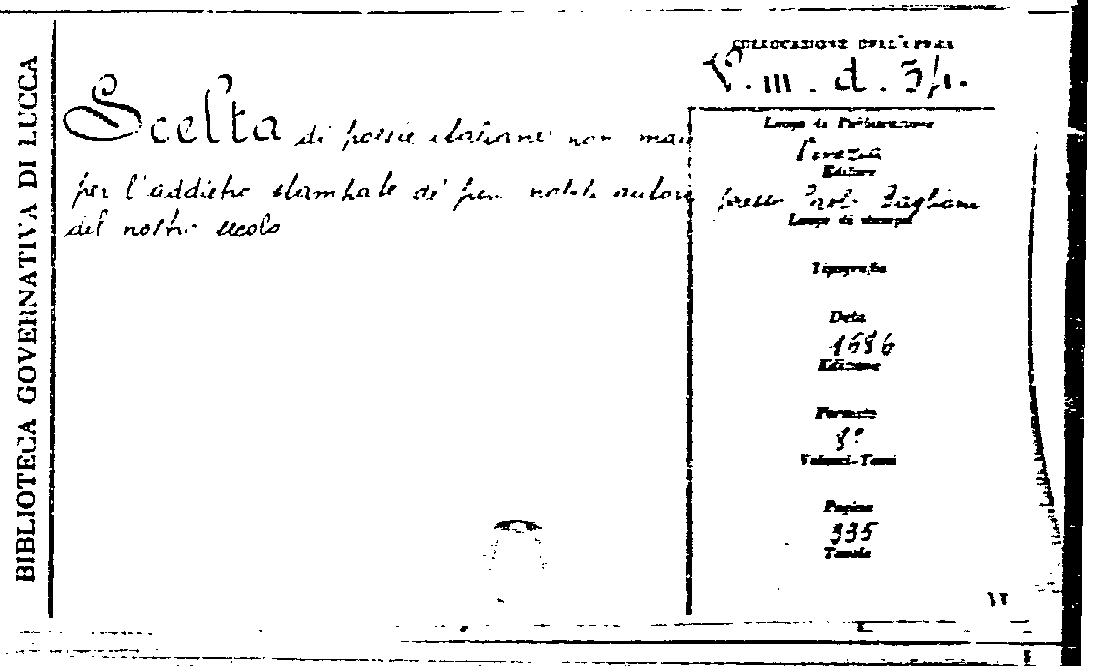 BIBLIOTECA GOVERNATIVA DI LUCCA
COLLOCAZIONE DELL'OPERA
Scelta di poesie italiane non mai
per l'addietro stampate de' più nobili autori
del nostro secolo
Luogo di Pubblicazione
Venezia
Editore
presso Paolo Baglioni
Luogo di stampa
Tipografia
Data
1686
Edizione
Formato
8°
Volumi-Tomi
Pagine
335
Tavole